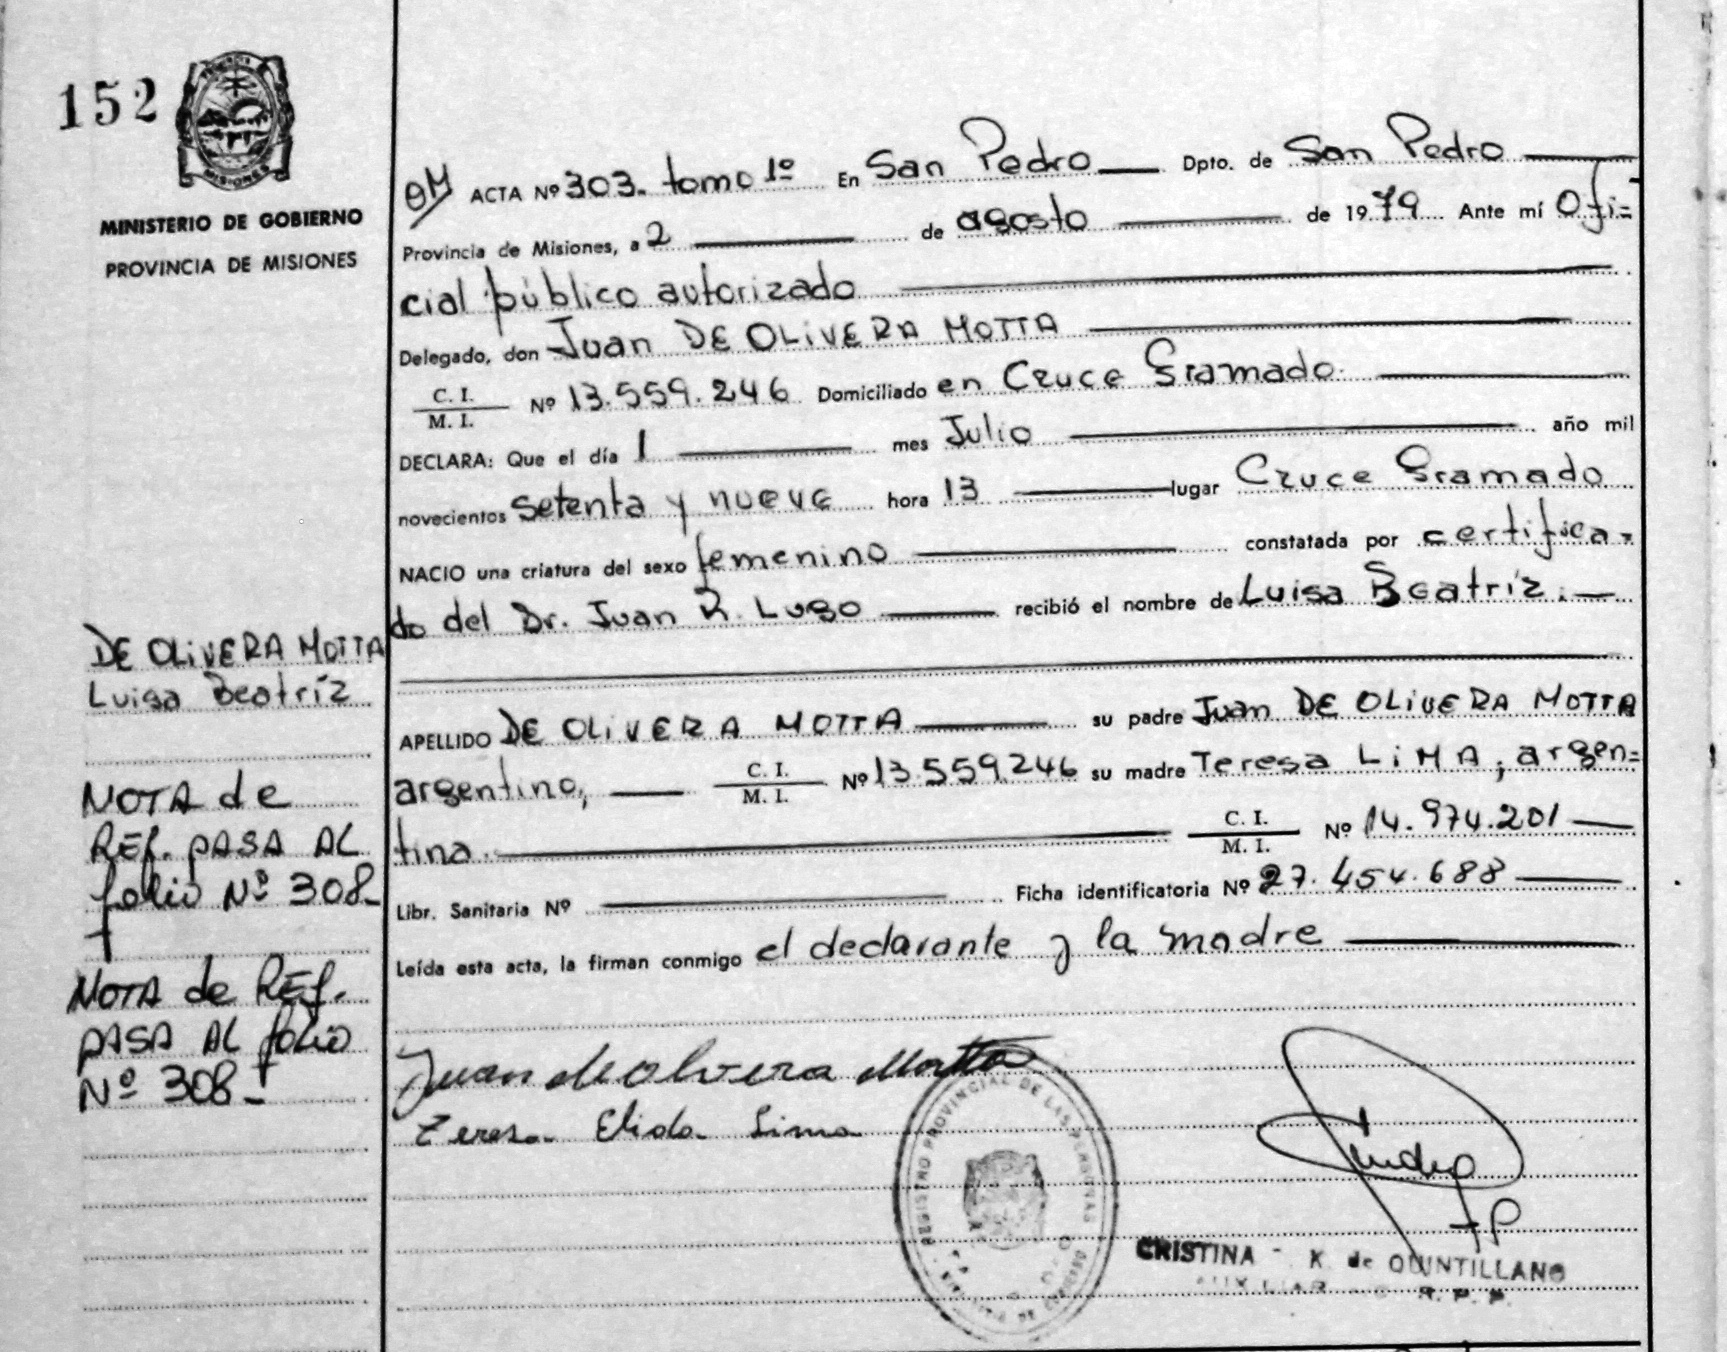 152
MISIONES
MINISTERIO DE GOBIERNO
PROVINCIA DE MISIONES
DE OLIVERA MOTTA
Luisa Beatríz
NOTA de
REf. PASA AL
folio Nº 308-
NOTA de REf.
PASA AL folio
Nº 308-
ACTA Nº 303. tomo 1º En San Pedro Dpto. de San Pedro
Provincia de Misiones, a 2 de agosto de 1979 Ante mí Ofi=
cial público autorizado
Delegado, don Juan DE OLIVERA MOTTA
C. I.
M. I. Nº 13.559.246 Domiciliado en Cruce Gramado
DECLARA: Que el día 1 mes Julio año mil
novecientos setenta y nueve hora 13 lugar Cruce Gramado
NACIO una criatura del sexo femenino constatada por certifica=
do del Dr. Juan R. Lugo recibió el nombre de Luisa Beatríz.
APELLIDO DE OLIVERA MOTTA su padre Juan DE OLIVERA MOTTA
argentino, C. I.
M. I. Nº 13.559.246 su madre Teresa LIMA, argen=
tina. C. I.
M. I. Nº 14.974.201
Libr. Sanitaria Nº Ficha identificatoria Nº 27.454.688
Leída esta acta, la firman conmigo el declarante y la madre
Juan de Olivera Motta
Teresa Elida Lima
REGISTRO PROVINCIAL DE LAS PERSONAS
CRISTINA - K de QUINTILLANO
AUXILIAR R. P. P.